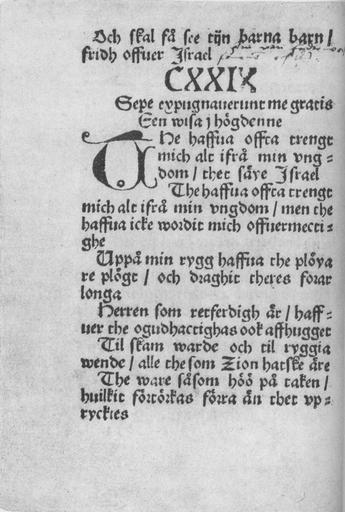 Och skal få see tijn barna barn /
fridh offuer Israel
CXXIX
Sepe expugnauerunt me gratis
Een wisa j högdenne
The haffua offta trengt
mich alt ifrå min vng=
dom / thet säye Israel
The haffua offta trengt
mich alt ifrå min vngdom / men the
haffua icke wordit mich offuermecti=
ghe
Vppå min rygg haffua the plöya
re plögt / och draghit theres forar
longa
Herren som retferdigh är / haff=
uer the ogudhactighas ook affhugget
Til skam warde och til ryggia
wende / alle the som Zion hatske äre
The ware såsom höö på taken /
huilkit förtörkas förra än thet vp=
ryckies